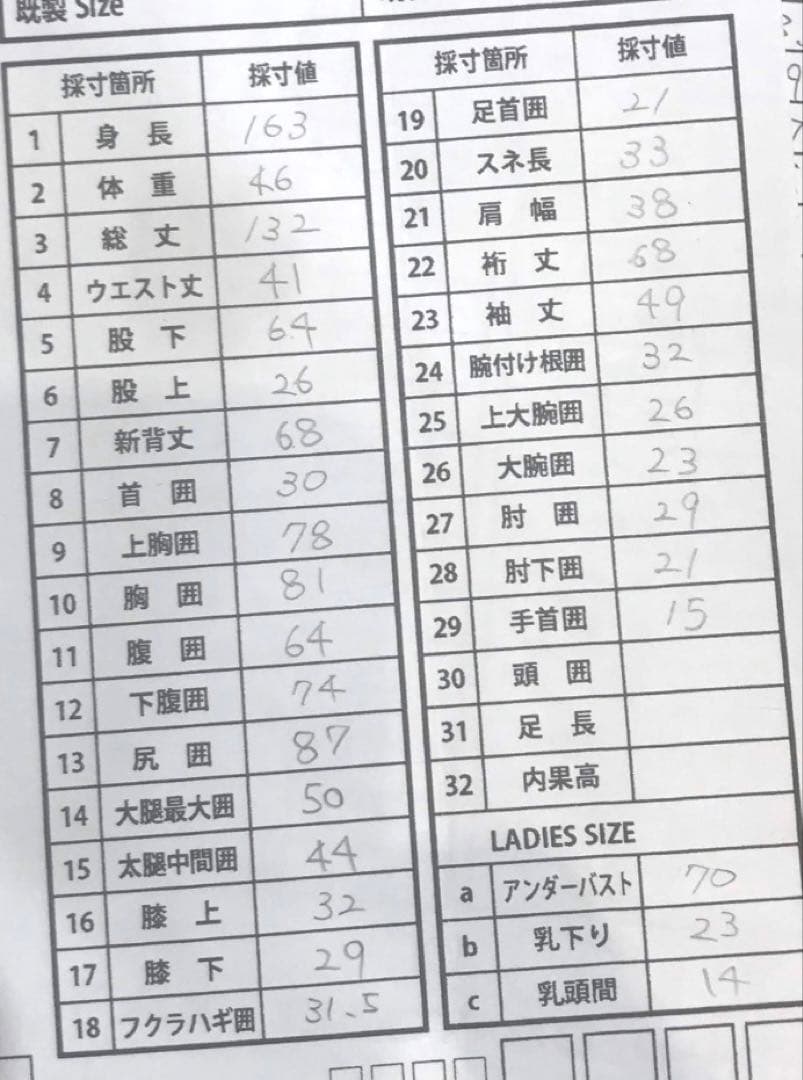 既製 Size
採寸箇所 採寸値
1 身長 163
2 体重 46
3 総丈 132
4 ウエスト丈 41
5 股下 64
6 股上 26
7 新背丈 68
8 首囲 30
9 上胸囲 78
10 胸囲 81
11 腹囲 64
12 下腹囲 74
13 尻囲 87
14 大腿最大囲 50
15 太腿中間囲 44
16 膝上 32
17 膝下 29
18 フクラハギ囲 31.5
採寸箇所 採寸値
19 足首囲 21
20 スネ長 33
21 肩幅 38
22 裄丈 68
23 袖丈 49
24 腕付け根囲 32
25 上大腕囲 26
26 大腕囲 23
27 肘囲 29
28 肘下囲 21
29 手首囲 15
30 頭囲
31 足長
32 内果高
LADIES SIZE
a アンダーバスト 70
b 乳下り 23
c 乳頭間 14